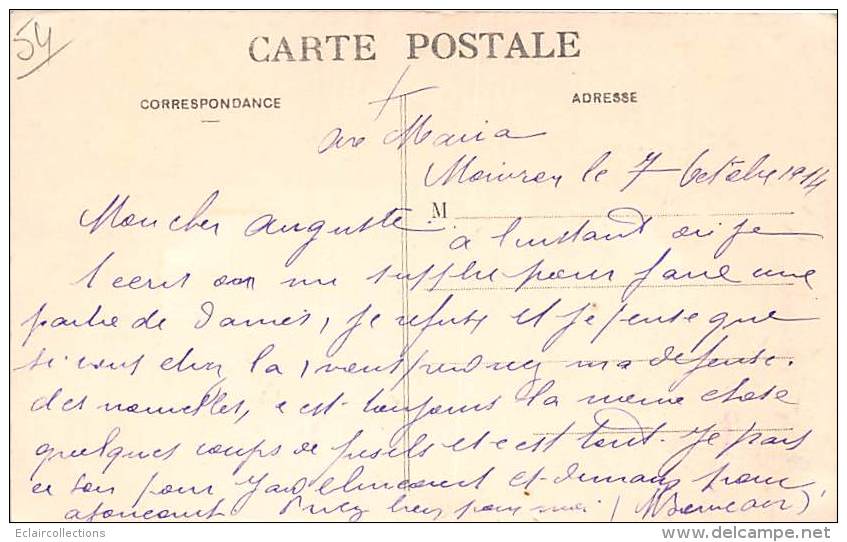 54
CARTE POSTALE
CORRESPONDANCE
ADRESSE
Ave Maria
le 7 Octobre 1914
Mon cher Auguste
M
à l'instant où je
t'ecris on me supplie pour faire une
partie de Dames, je refuse et je pense que
si vous etiez la, vous prendriez ma defense.
des nouvelles, c est toujours la meme chose
quelques coups de fusils et c est tout. Je pars
ce soir pour et demain pour
Priez bien pour moi
Eclaircollections
www.delcampe.net